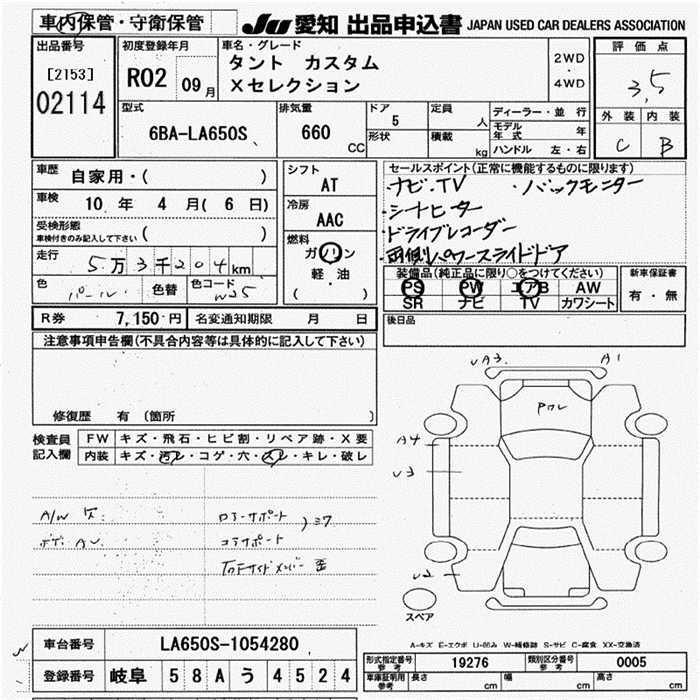 車内保管・守衛保管
JU 愛知 出品申込書 JAPAN USED CAR DEALERS ASSOCIATION
出品番号
[2153]
02114
初度登録年月
R02 09月
車名・グレード
タント カスタム
Xセレクション
2WD
・
4WD
評価点
3,5
外装 内装
C B
型式
6BA-LA650S
排気量
660
CC
ドア
5
形状
定員
人
積載
kg
ディーラー・並行
モデル年式 年
ハンドル 左・右
車歴
自家用・( )
車検
10 年 4 月( 6 日)
受検形態
車検付きのみ記入して下さい ( )
走行
5万3千204km
色
パール
色替
色コード
W25
シフト
AT
冷房
AAC
燃料
ガソリン
軽・油
( )
セールスポイント(正常に機能するものに限ります)
・ナビ・TV ・バックモニター
・シートヒーター
・ドライブレコーダー
・両側パワースライドドア
装備品(純正品に限り○をつけてください)
PS PW エアB AW
SR ナビ TV カワシート
新車保証書
有・無
後日品
R券 7,150円 名変通知期限 月 日
注意事項申告欄(不具合内容等は具体的に記入して下さい)
修復歴 有 (箇所 )
検査員記入欄
FW キズ・飛石・ヒビ割・リペア跡・X要
内装 キズ・汚レ・コゲ・穴・スレ・キレ・破レ
A/W キズ
コアサポート
UA3 A1
A4
U3
U2
スペア
A-キズ E-エクボ U-凹み W-補修跡 S-サビ C-腐食 XX-交換済
車台番号 LA650S-1054280
登録番号 岐阜 58A う 4524
形式指定番号 参考 19276 類別区分番号 参考 0005
車庫証明用 参考 長さ cm 幅 cm 高さ cm